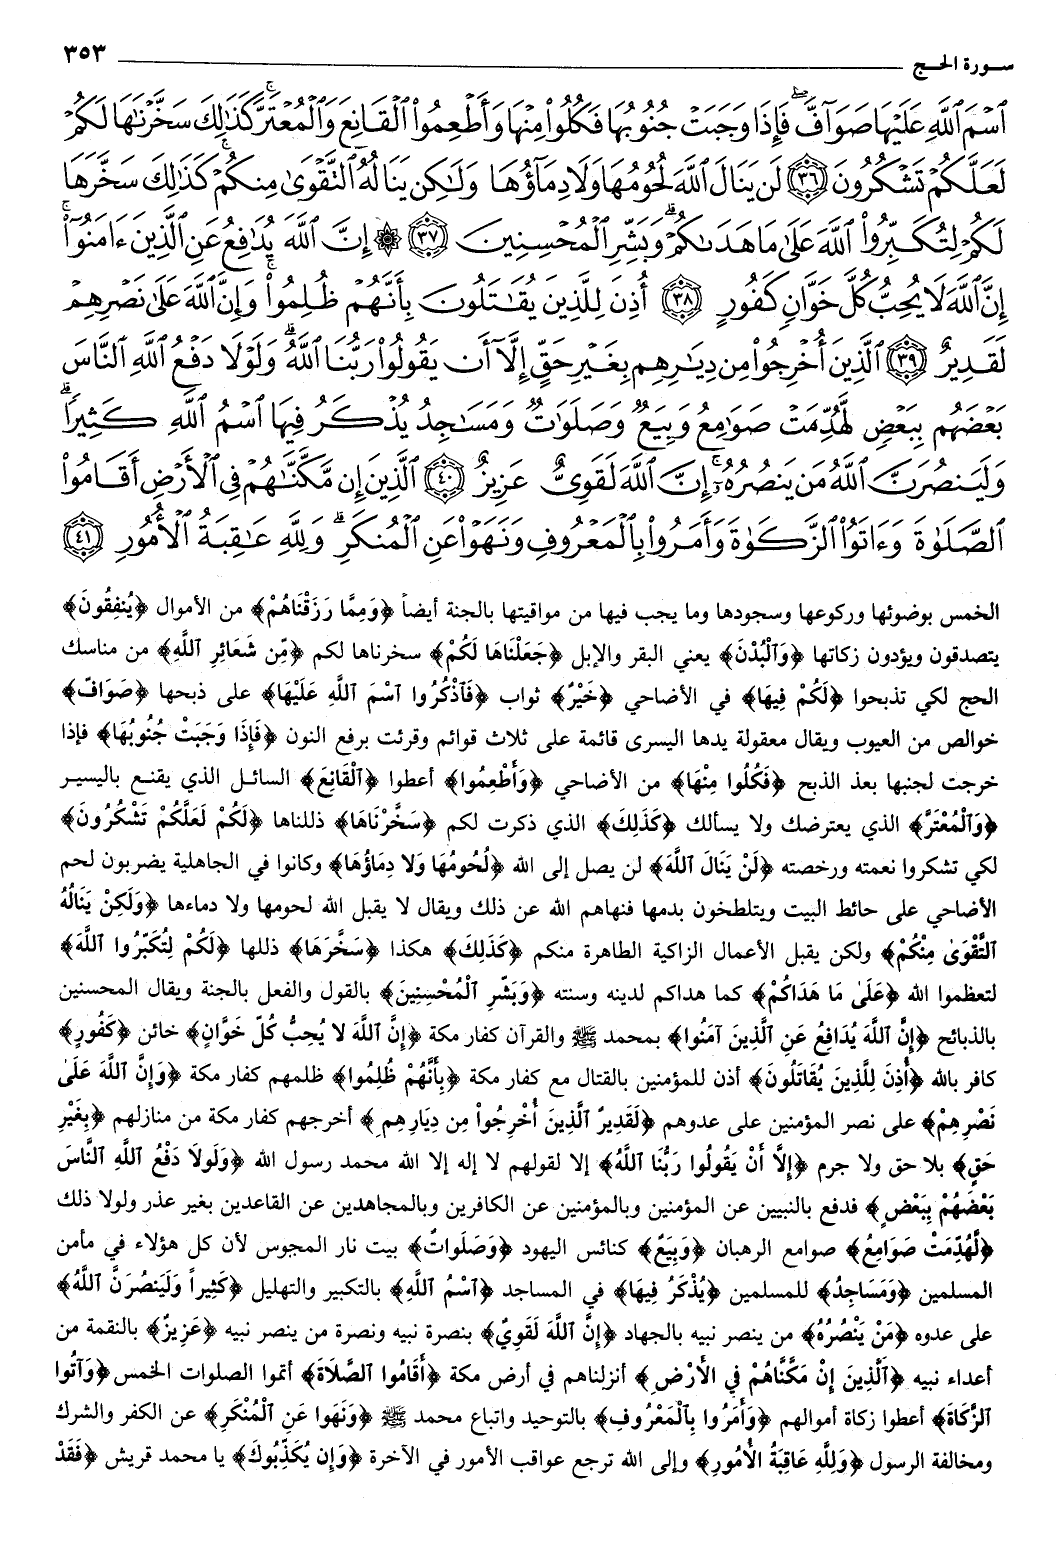 سورة الحج ٣٥٣
ٱسۡمَ ٱللَّهِ عَلَيۡهَا صَوَآفَّۖ فَإِذَا وَجَبَتۡ جُنُوبُهَا فَكُلُواْ مِنۡهَا وَأَطۡعِمُواْ ٱلۡقَانِعَ وَٱلۡمُعۡتَرَّۚ كَذَٰلِكَ سَخَّرۡنَٰهَا لَكُمۡ
لَعَلَّكُمۡ تَشۡكُرُونَ ٣٦ لَن يَنَالَ ٱللَّهَ لُحُومُهَا وَلَا دِمَآؤُهَا وَلَٰكِن يَنَالُهُ ٱلتَّقۡوَىٰ مِنكُمۡۚ كَذَٰلِكَ سَخَّرَهَا
لَكُمۡ لِتُكَبِّرُواْ ٱللَّهَ عَلَىٰ مَا هَدَىٰكُمۡۗ وَبَشِّرِ ٱلۡمُحۡسِنِينَ ٣٧ ۞ إِنَّ ٱللَّهَ يُدَٰفِعُ عَنِ ٱلَّذِينَ ءَامَنُوٓاْۗ
إِنَّ ٱللَّهَ لَا يُحِبُّ كُلَّ خَوَّانٍ كَفُورٍ ٣٨ أُذِنَ لِلَّذِينَ يُقَٰتَلُونَ بِأَنَّهُمۡ ظُلِمُواْۚ وَإِنَّ ٱللَّهَ عَلَىٰ نَصۡرِهِمۡ
لَقَدِيرٌ ٣٩ ٱلَّذِينَ أُخۡرِجُواْ مِن دِيَٰرِهِم بِغَيۡرِ حَقٍّ إِلَّآ أَن يَقُولُواْ رَبُّنَا ٱللَّهُۗ وَلَوۡلَا دَفۡعُ ٱللَّهِ ٱلنَّاسَ
بَعۡضَهُم بِبَعۡضٍ لَّهُدِّمَتۡ صَوَٰمِعُ وَبِيَعٌ وَصَلَوَٰتٌ وَمَسَٰجِدُ يُذۡكَرُ فِيهَا ٱسۡمُ ٱللَّهِ كَثِيرًاۗ
وَلَيَنصُرَنَّ ٱللَّهُ مَن يَنصُرُهُۥٓۚ إِنَّ ٱللَّهَ لَقَوِيٌّ عَزِيزٌ ٤٠ ٱلَّذِينَ إِن مَّكَّنَّٰهُمۡ فِي ٱلۡأَرۡضِ أَقَامُواْ
ٱلصَّلَوٰةَ وَءَاتَوُاْ ٱلزَّكَوٰةَ وَأَمَرُواْ بِٱلۡمَعۡرُوفِ وَنَهَوۡاْ عَنِ ٱلۡمُنكَرِۗ وَلِلَّهِ عَٰقِبَةُ ٱلۡأُمُورِ ٤١
الخمس بوضوئها وركوعها وسجودها وما يجب فيها من مواقيتها بالجنة أيضاً ﴿وَمِمَّا رَزَقْنَاهُمْ﴾ من الأموال ﴿يُنفِقُونَ﴾
يتصدقون ويؤدون زكاتها ﴿وَٱلْبُدْنَ﴾ يعني البقر والإبل ﴿جَعَلْنَاهَا لَكُمْ﴾ سخرناها لكم ﴿مِّن شَعَائِرِ ٱللَّهِ﴾ من مناسك
الحج لكي تذبحوا ﴿لَكُمْ فِيهَا﴾ في الأضاحي ﴿خَيْرٌ﴾ ثواب ﴿فَٱذْكُرُوا ٱسْمَ ٱللَّهِ عَلَيْهَا﴾ على ذبحها ﴿صَوَافَّ﴾
خوالص من العيوب ويقال معقولة يدها اليسرى قائمة على ثلاث قوائم وقرئت برفع النون ﴿فَإِذَا وَجَبَتْ جُنُوبُهَا﴾ فإذا
خرجت لجنبها بعذ الذبح ﴿فَكُلُوا مِنْهَا﴾ من الأضاحي ﴿وَأَطْعِمُوا﴾ أعطوا ﴿ٱلْقَانِعَ﴾ السائل الذي يقنع باليسير
﴿وَٱلْمُعْتَرَّ﴾ الذي يعترضك ولا يسألك ﴿كَذَلِكَ﴾ الذي ذكرت لكم ﴿سَخَّرْنَاهَا﴾ ذللناها ﴿لَكُمْ لَعَلَّكُمْ تَشْكُرُونَ﴾
لكي تشكروا نعمته ورخصته ﴿لَنْ يَنَالَ ٱللَّهَ﴾ لن يصل إلى الله ﴿لُحُومُهَا وَلَا دِمَاؤُهَا﴾ وكانوا في الجاهلية يضربون لحم
الأضاحي على حائط البيت ويتلطخون بدمها فنهاهم الله عن ذلك ويقال لا يقبل الله لحومها ولا دماءها ﴿وَلَكِنْ يَنَالُهُ
ٱلتَّقْوَىٰ مِنْكُمْ﴾ ولكن يقبل الأعمال الزاكية الطاهرة منكم ﴿كَذَلِكَ﴾ هكذا ﴿سَخَّرَهَا﴾ ذللها ﴿لَكُمْ لِتُكَبِّرُوا ٱللَّهَ﴾
لتعظموا الله ﴿عَلَىٰ مَا هَدَاكُمْ﴾ كما هداكم لدينه وسنته ﴿وَبَشِّرِ ٱلْمُحْسِنِينَ﴾ بالقول والفعل بالجنة ويقال المحسنين
بالذبائح ﴿إِنَّ ٱللَّهَ يُدَافِعُ عَنِ ٱلَّذِينَ آمَنُوا﴾ بمحمد ﷺ والقرآن كفار مكة ﴿إِنَّ ٱللَّهَ لَا يُحِبُّ كُلَّ خَوَّانٍ﴾ خائن ﴿كَفُورٍ﴾
كافر بالله ﴿أُذِنَ لِلَّذِينَ يُقَاتَلُونَ﴾ أذن للمؤمنين بالقتال مع كفار مكة ﴿بِأَنَّهُمْ ظُلِمُوا﴾ ظلمهم كفار مكة ﴿وَإِنَّ ٱللَّهَ عَلَىٰ
نَصْرِهِمْ﴾ على نصر المؤمنين على عدوهم ﴿لَقَدِيرٌ ٱلَّذِينَ أُخْرِجُواْ مِن دِيَارِهِم﴾ أخرجهم كفار مكة من منازلهم ﴿بِغَيْرِ
حَقٍ﴾ بلا حق ولا جرم ﴿إِلَّا أَنْ يَقُولُوا رَبُّنَا ٱللَّهُ﴾ إلا لقولهم لا إله إلا الله محمد رسول الله ﴿وَلَولَا دَفْعُ ٱللَّهِ ٱلنَّاسَ
بَعْضَهُمْ بِبَعْضٍ﴾ فدفع بالنبيين عن المؤمنين وبالمؤمنين عن الكافرين وبالمجاهدين عن القاعدين بغير عذر ولولا ذلك
﴿لَّهُدِّمَتْ صَوَامِعُ﴾ صوامع الرهبان ﴿وَبِيَعٌ﴾ كنائس اليهود ﴿وَصَلَوَاتٌ﴾ بيت نار المجوس لأن كل هؤلاء في مأمن
المسلمين ﴿وَمَسَاجِدُ﴾ للمسلمين ﴿يُذْكَرُ فِيهَا﴾ في المساجد ﴿ٱسْمُ ٱللَّهِ﴾ بالتكبير والتهليل ﴿كَثِيراً وَلَيَنصُرَنَّ ٱللَّهُ﴾
على عدوه ﴿مَنْ يَنْصُرُهُ﴾ من ينصر نبيه بالجهاد ﴿إِنَّ ٱللَّهَ لَقَوِيٌّ﴾ بنصرة نبيه ونصرة من ينصر نبيه ﴿عَزِيزٌ﴾ بالنقمة من
أعداء نبيه ﴿ٱلَّذِينَ إِنْ مَكَّنَّاهُمْ فِي ٱلأَرْضِ﴾ أنزلناهم في أرض مكة ﴿أَقَامُوا ٱلصَّلاَةَ﴾ أتموا الصلوات الخمس ﴿وَآتُوا
ٱلزَّكَاةَ﴾ أعطوا زكاة أموالهم ﴿وَأَمَرُوا بِٱلْمَعْرُوفِ﴾ بالتوحيد واتباع محمد ﷺ ﴿وَنَهَوا عَنِ ٱلْمُنْكَرِ﴾ عن الكفر والشرك
ومخالفة الرسول ﴿وَلِلَّهِ عَاقِبَةُ ٱلأُمُورِ﴾ وإلى الله ترجع عواقب الأمور في الآخرة ﴿وَإِن يُكَذِّبُوكَ﴾ يا محمد قريش ﴿فَقَدْ